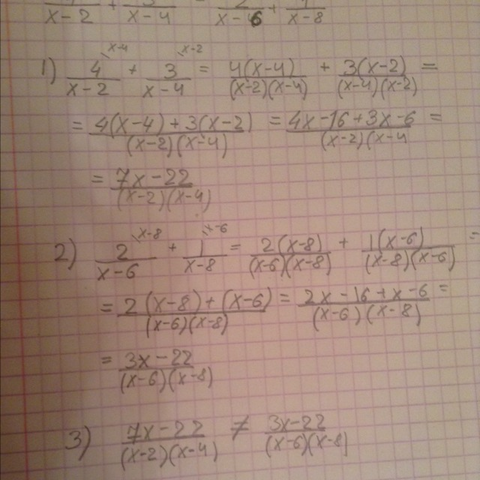 x-2 + x-4   x-6 + x-8
x-4 x-2
1) 4/(x-2) + 3/(x-4) = 4(x-4)/(x-2)(x-4) + 3(x-2)/(x-4)(x-2) =
= 4(x-4)+3(x-2)/(x-2)(x-4) = 4x-16+3x-6/(x-2)(x-4 =
= 7x-22/(x-2)(x-4)
x-8 x-6
2) 2/(x-6) + 1/(x-8) = 2(x-8)/(x-6)(x-8) + 1(x-6)/(x-8)(x-6) =
= 2(x-8)+(x-6)/(x-6)(x-8) = 2x-16+x-6/(x-6)(x-8) =
= 3x-22/(x-6)(x-8)
3) 7x-22/(x-2)(x-4) ≠ 3x-22/(x-6)(x-8)